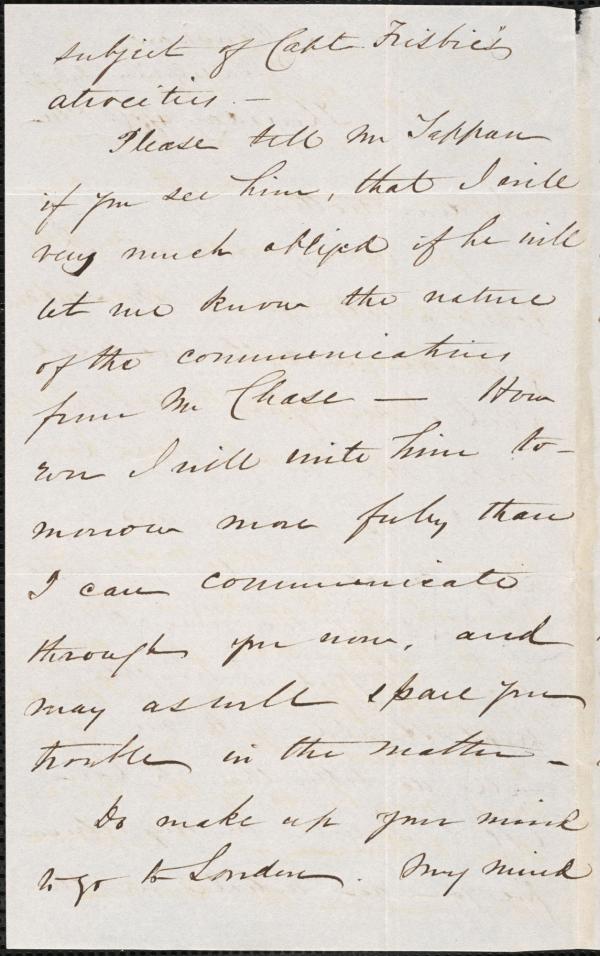 subject of Capt Frisbie's
atrocities. —
Please tell Mr Tappan
if you see him, that I will
very much obliged if he will
let me know the nature
of the communications
from Mr Chase — How
ever I will write him to-
morrow more fully than
I can communicate
through you now, and
may as well spare you
trouble in the matter —
Do make up your mind
to go to London. My mind